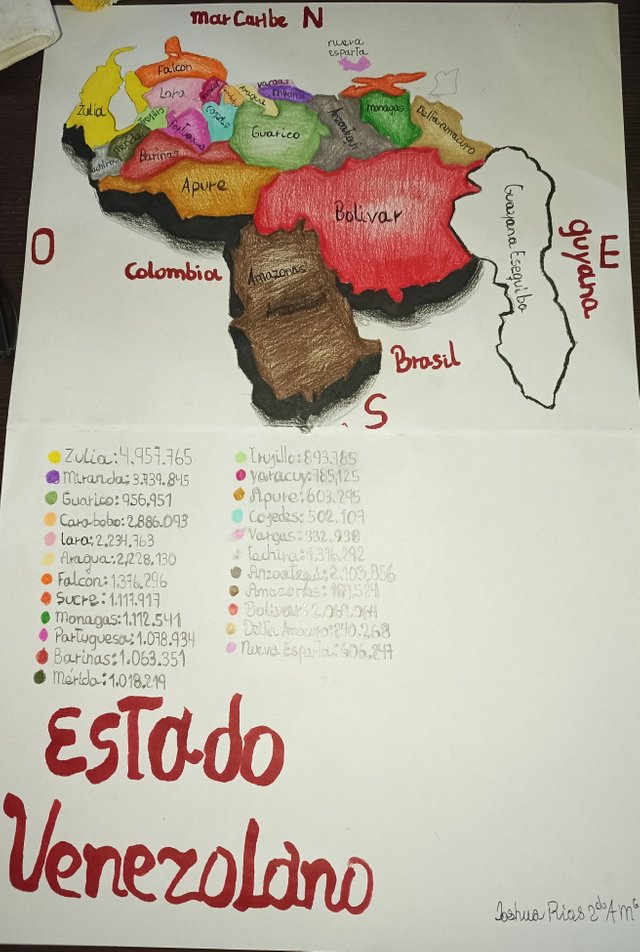 mar Caribe N
nueva
esparta
Falcon
Zulia
Lara
Aragua
Vargas
Miranda
Trujillo
Merida
Cojedes
Guarico
Anzoategui
monagas
Delta amacuro
Barinas
Apure
Bolivar
Guayana Esequibo
O
E
guyana
Colombia
Amazonas
Brasil
S
Zulia: 4.957.765
Miranda: 3.739.845
Guarico: 956.951
Carabobo: 2.886.093
Lara: 2.234.763
Aragua: 2.228.130
Falcon: 1.376.296
Sucre: 1.117.917
Monagas: 1.112.541
Portuguesa: 1.078.934
Barinas: 1.063.351
Mérida: 1.018.219
Trujillo: 893.785
Yaracuy: 785,125
Apure: 603.295
Cojedes: 502.109
Vargas: 332.938
Tachira: 1.376.292
Anzoategui: 2.109.856
Amazonas:
Bolivar: 2.069.064
Delta Amacuro: 240.268
nueva Esparta: 606.247
Estado
Venezolano
Joshua Rias 2do A